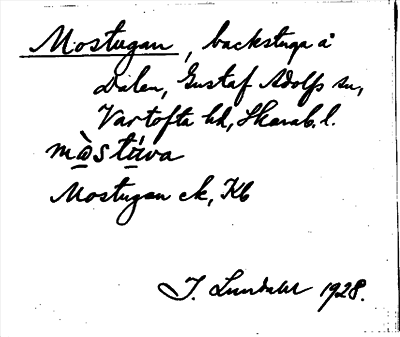 Mostugan, backstuga å
Dalen, Gustaf Adolfs sn,
Vartofta hd, Skarab. l.
mòstúva
Mostugan ek, Kb
J. Lundahl 1928.